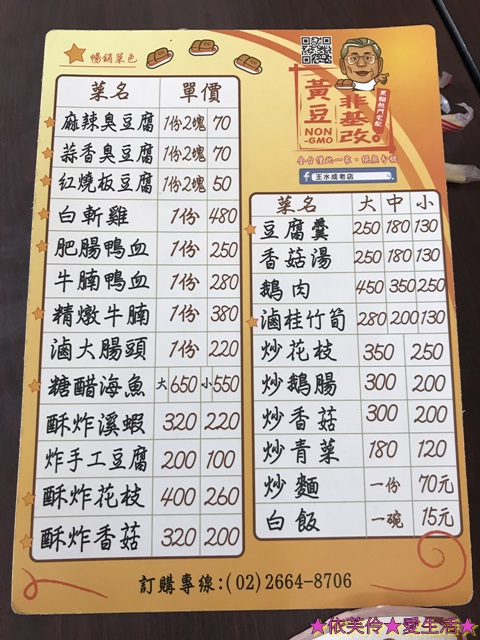 暢銷菜色
菜名 單價
麻辣臭豆腐 1份2塊 70
蒜香臭豆腐 1份2塊 70
紅燒板豆腐 1份2塊 50
白斬雞 1份 480
肥腸鴨血 1份 250
牛腩鴨血 1份 280
精燉牛腩 1份 380
滷大腸頭 1份 220
糖醋海魚 大650 小550
酥炸溪蝦 320 220
炸手工豆腐 200 100
酥炸花枝 400 260
酥炸香菇 320 200
黃豆
NON
-GMO
非基改。
黑貓熱門宅配
全台僅此一家，絕無分號
王水成老店
菜名 大 中 小
豆腐羹 250 180 130
香菇湯 250 180 130
鵝肉 450 350 250
滷桂竹筍 280 200 130
炒花枝 350 250
炒鵝腸 300 200
炒香菇 300 200
炒青菜 180 120
炒麵 一份 70元
白飯 一碗 15元
訂購專線:(02)2664-8706
★依芙伶★愛生活★